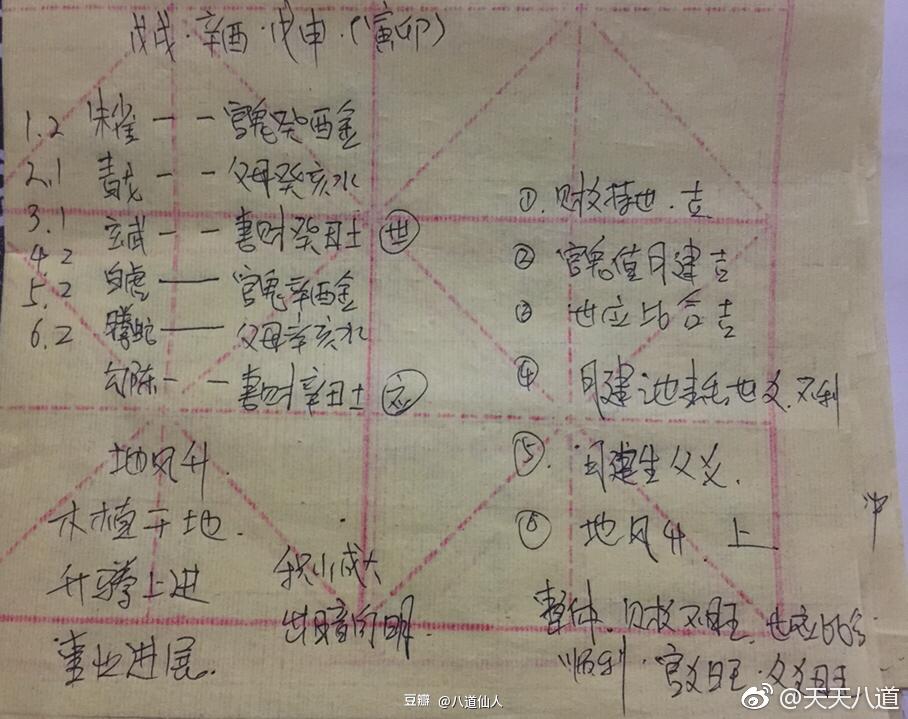 戊戌·辛酉·戊申·(寅卯)
1.2 朱雀 — — 官鬼癸酉金
2.1 青龙 — — 父母癸亥水
3.1 玄武 — — 妻财癸丑土 世
4.2 白虎 —— 官鬼辛酉金
5.2 螣蛇 —— 父母辛亥水
6.2 勾陈 — — 妻财辛丑土 应
地风升.
木植于地.
升腾上进
事业进展.
积小成大
出暗向明.
① 财爻持世.吉
② 官鬼值月建吉
③ 世应比合吉
④ 月建泄耗世爻.不利
⑤. 月建生父爻.
⑥ 地风升 上
整体.财爻不旺.世应比合
顺利.官爻旺.父爻旺
冲
豆瓣 @八道仙人
@天天八道